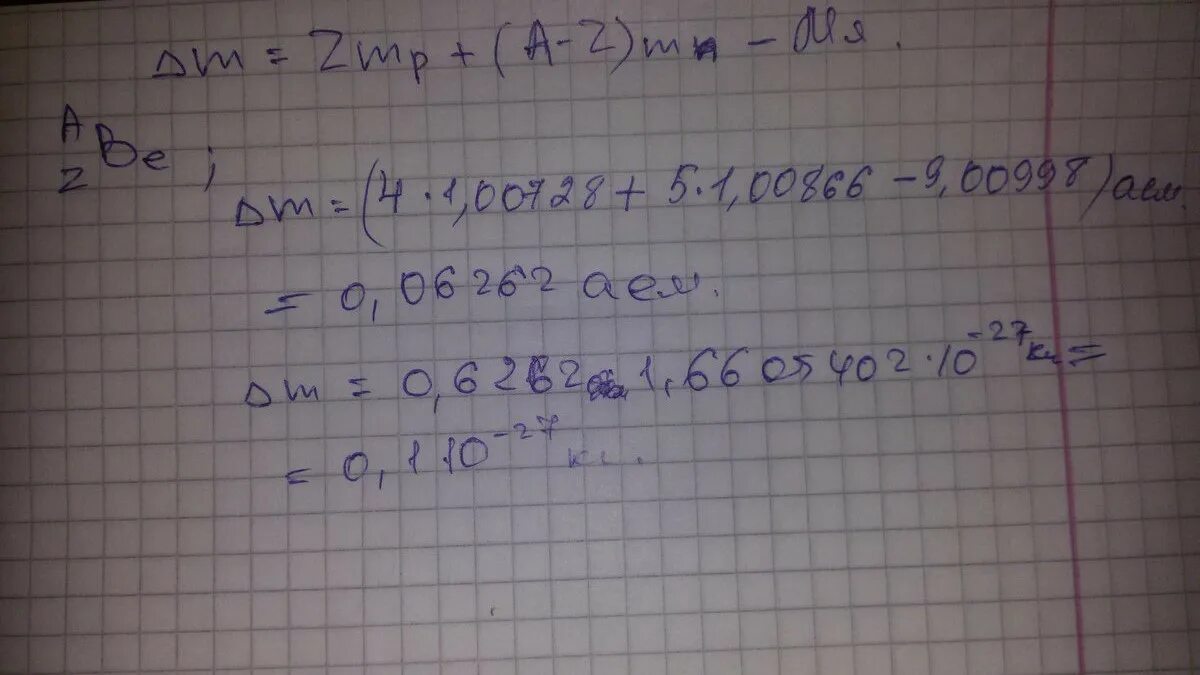 Δm = Zmp + (A-Z)mn - Мя.
A
Z Be ;
Δm = (4·1,00728 + 5·1,00866 - 9,00998) аем.
= 0,06262 аем.
Δm = 0,6262 1,6605402·10⁻²⁷кг =
= 0,1 10⁻²⁷ кг.